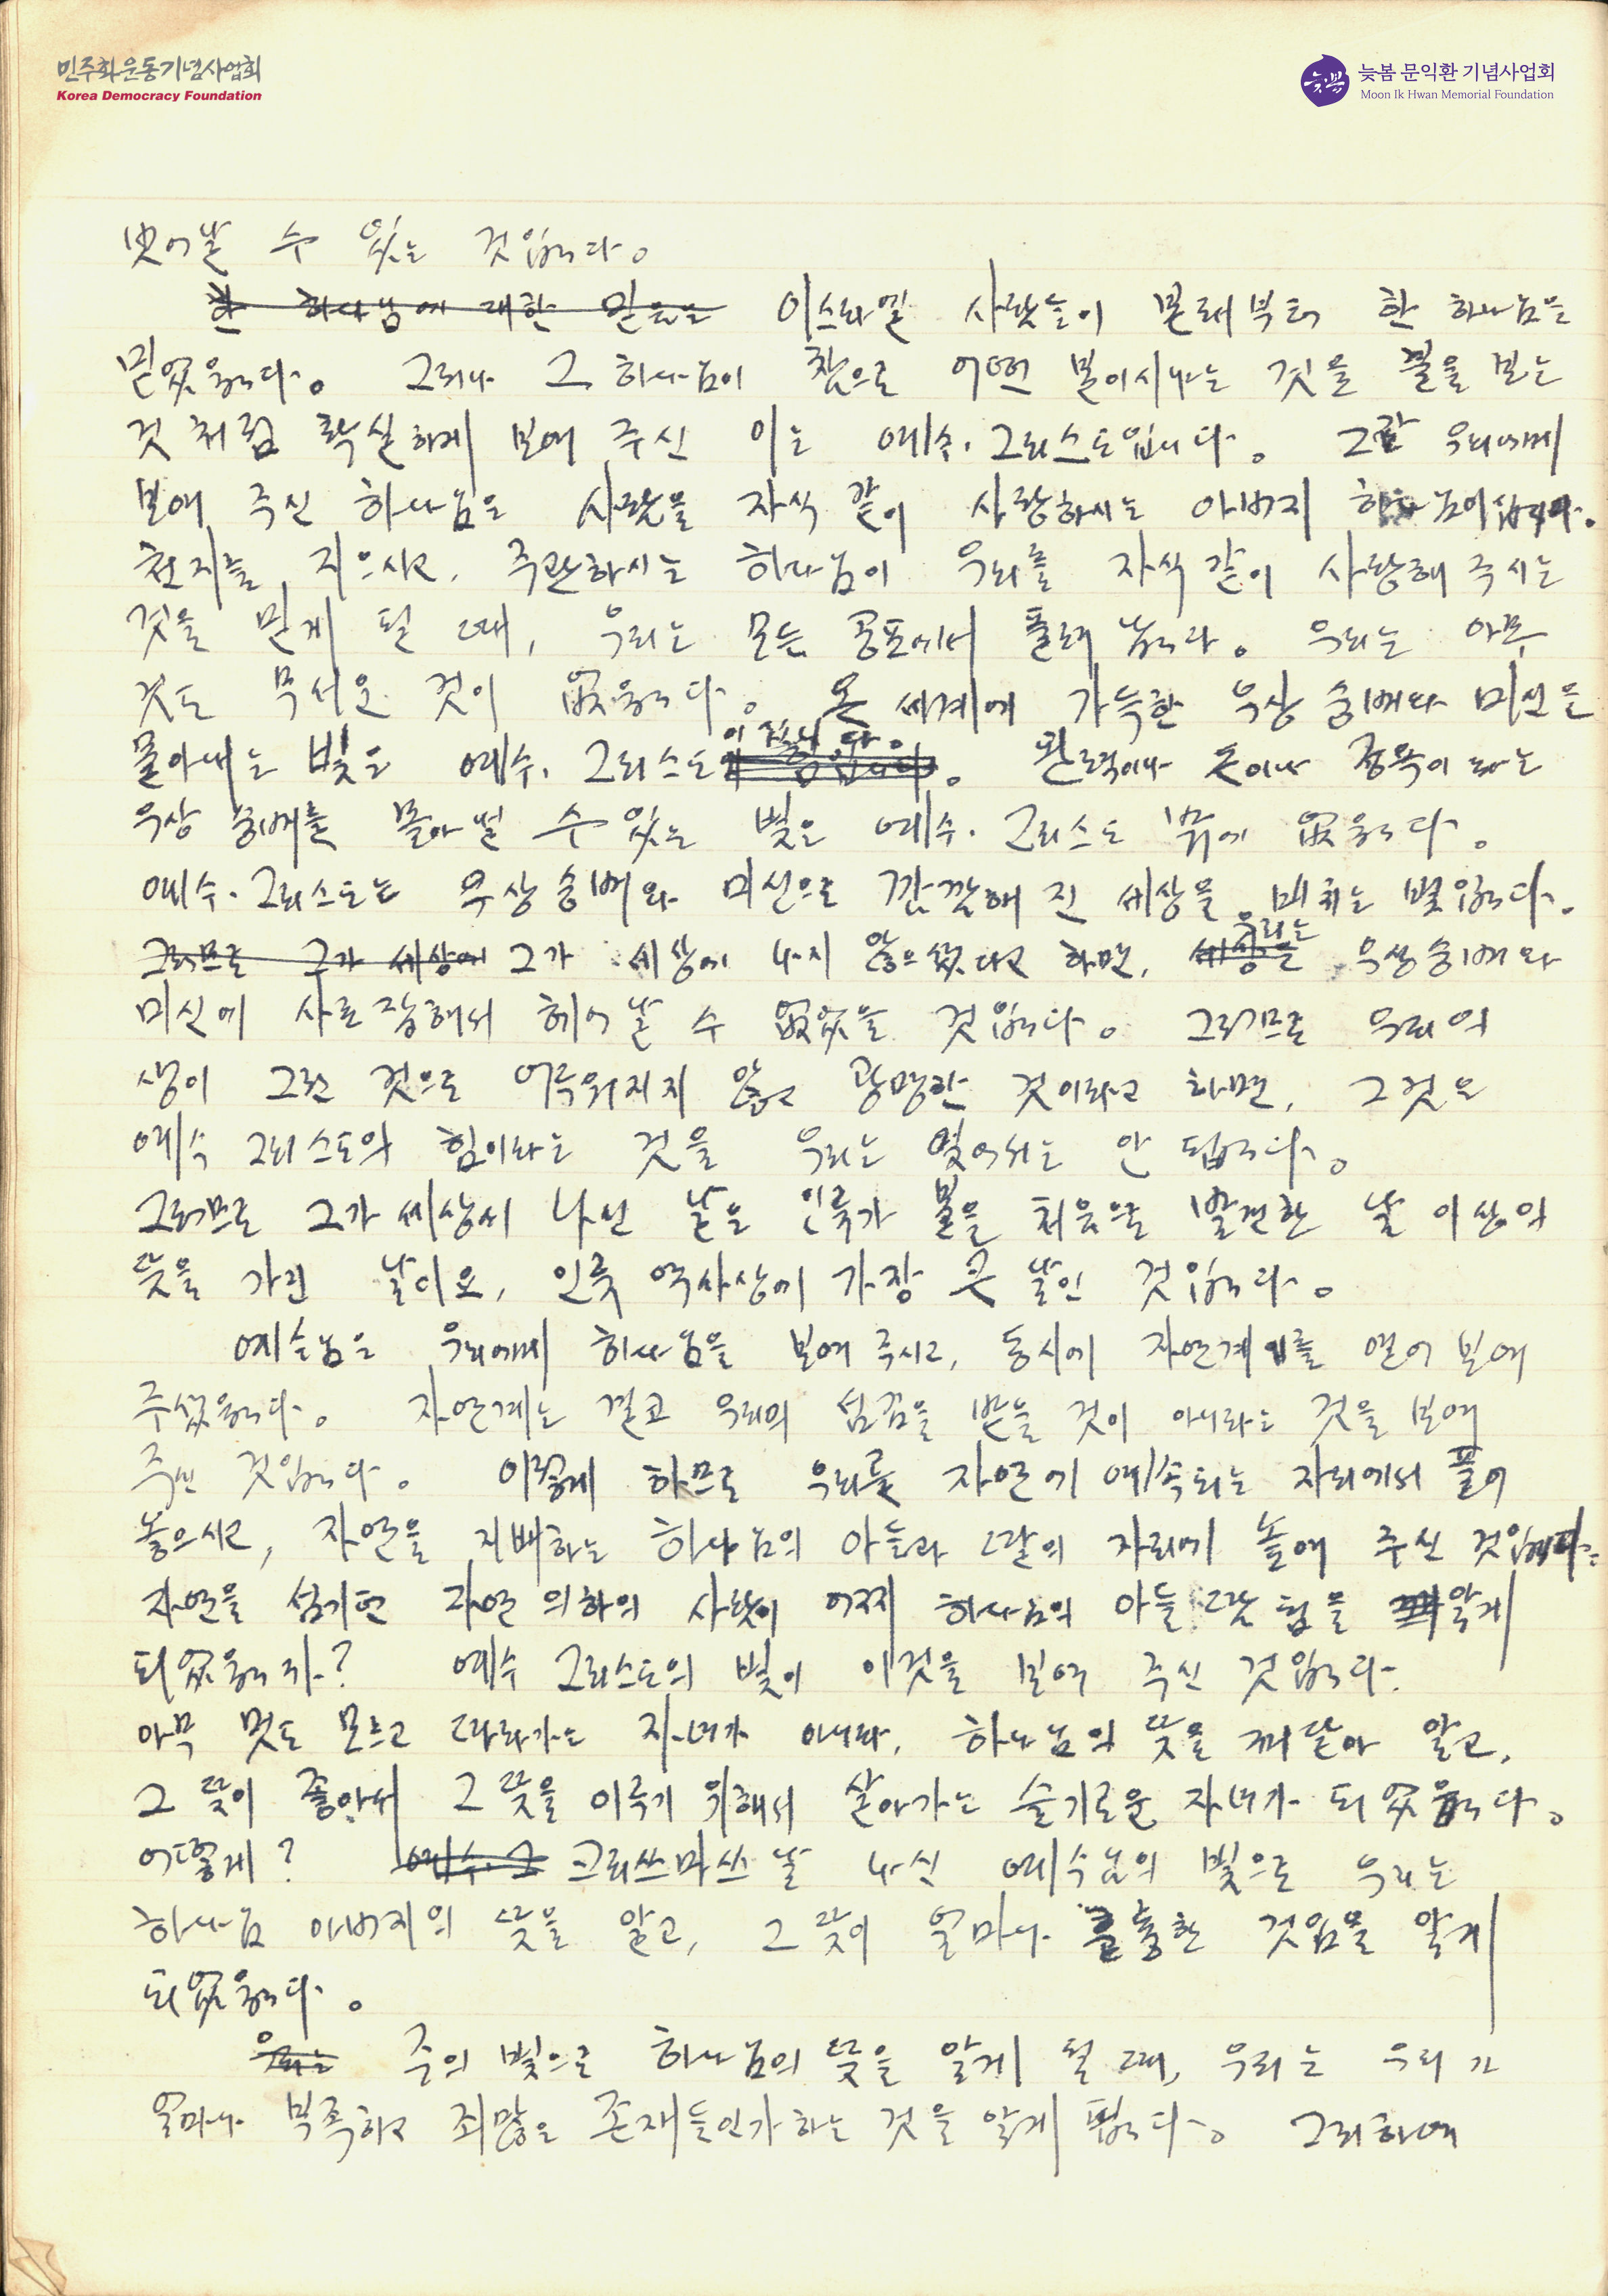 민주화운동기념사업회
Korea Democracy Foundation
늦봄 문익환 기념사업회
Moon Ik Hwan Memorial Foundation
벗어날 수 있는 것입니다.
한 하나님에 대한 믿음은 이스라엘 사람들이 본래부터 한 하나님을
믿었읍니다. 그러나 그 하나님이 참으로 어떤 분이시라는 것을 불을 보는
것 처럼 확실하게 보여 주신 이는 예수·그리스도입니다. 그가 우리에게
보여 주신 하나님은 사람을 자식 같이 사랑하시는 아버지 하나님이십니다.
천지를 지으시고, 주관하시는 하나님이 우리를 자식 같이 사랑해 주시는
것을 믿게 될 때, 우리는 모든 공포에서 풀려 납니다. 우리는 아무
것도 무서운 것이 없읍니다. 온 세계에 가득한 우상 숭배와 미신을
몰아내는 빛은 예수·그리스도 이십니다. 권력이나 돈이나 종족이라는
우상 숭배를 몰아 낼 수 있는 빛은 예수·그리스도 밖에 없읍니다.
예수·그리스도는 우상숭배와 미신으로 깜깜해 진 세상을 비치는 빛입니다.
그러므로 그가 세상에 그가 세상에 나지 않으셨다고 하면, 우리는 우상숭배와
미신에 사로잡혀서 헤어날 수 없었을 것입니다. 그러므로 우리의
생이 그런 것으로 어두워지지 않고 광명한 것이라고 하면, 그것은
예수 그리스도의 힘이라는 것을 우리는 잊어서는 안 됩니다.
그러므로 그가 세상에 나신 날은 인류가 불을 처음으로 발견한 날 이상의
뜻을 가진 날이요, 인류 역사상에 가장 큰 날인 것입니다.
예수님은 우리에게 하나님을 보여 주시고, 동시에 자연계를 열어 보여
주셨읍니다. 자연계는 결코 우리의 섬김을 받을 것이 아니라는 것을 보여
주신 것입니다. 이렇게 하므로 우리를 자연에 예속되는 자리에서 풀어
놓으시고, 자연을 지배하는 하나님의 아들과 딸의 자리에 놓여 주신 것입니다.
자연을 섬기던 자연 의하의 사람이 어찌 하나님의 아들 딸 됨을 알게
되었읍니까? 예수 그리스도의 빛이 이것을 보여 주신 것입니다.
아무 멋도 모르고 따라가는 자녀가 아니라, 하나님의 뜻을 깨달아 알고,
그 뜻이 좋아서 그 뜻을 이루기 위해서 살아가는 슬기로운 자녀가 되었읍니다.
어떻게? 예수·그 크리쓰마쓰날 나신 예수님의 빛으로 우리는
하나님 아버지의 뜻을 알고, 그 뜻이 얼마나 훌륭한 것임을 알게
되었읍니다.
우리는 주의 빛으로 하나님의 뜻을 알게 될 때, 우리는 우리가
얼마나 부족하고 죄많은 존재들인가하는 것을 알게 됩니다. 그리하여